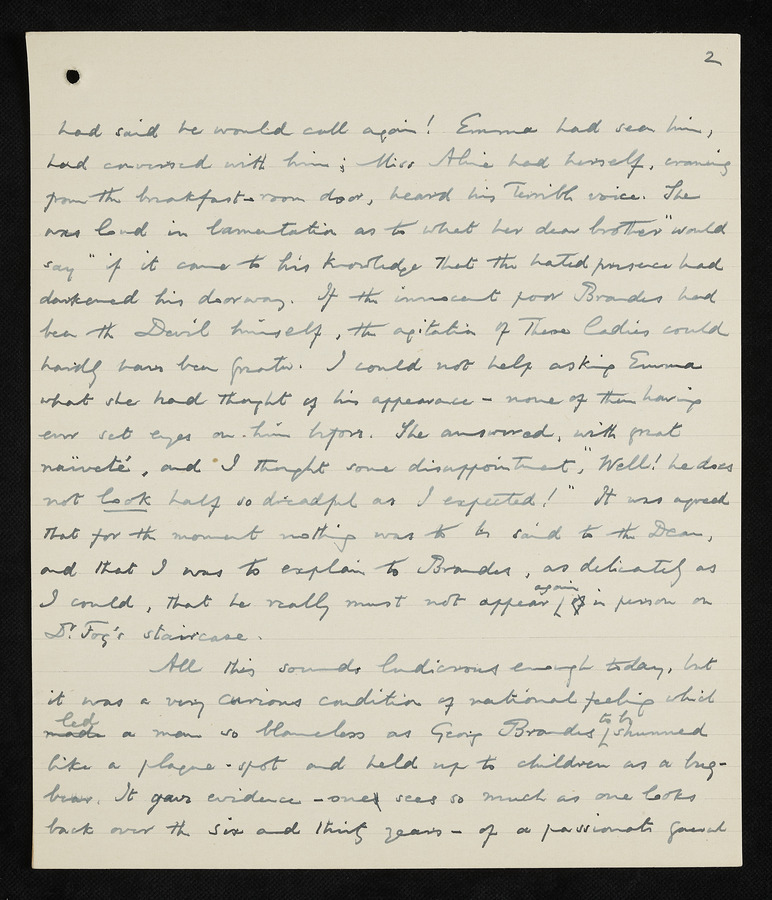 2
had said he would call again! Emma had seen him,
had conversed with him; Miss Aline had herself, craning
from the breakfast-room door, heard his terrible voice. She
was loud in lamentation as to what her dear brother "would
say" if it came to his knowledge that the hated presence had
darkened his doorway. If the innocent poor Brandes had
been the Devil himself, the agitation of these ladies could
hardly have been greater. I could not help asking Emma
what she had thought of his appearance – none of them having
ever set eyes on him before. She answered, with great
naïveté, and I thought some disappointment, "Well! he does
not look half so dreadful as I expected!" It was agreed
that for the moment nothing was to be said to the Dean,
and that I was to explain to Brandes, as delicately as
I could, that he really must not appear again in person on
Dr. Fog's staircase.
All this sounds ludicrous enough today, but
it was a very curious condition of national feeling which
made led a man so blameless as Georg Brandes to be shunned
like a plague-spot and held up to children as a bug-
bear. It gave evidence – one sees so much as one looks
back over the six and thirty years – of a passionate